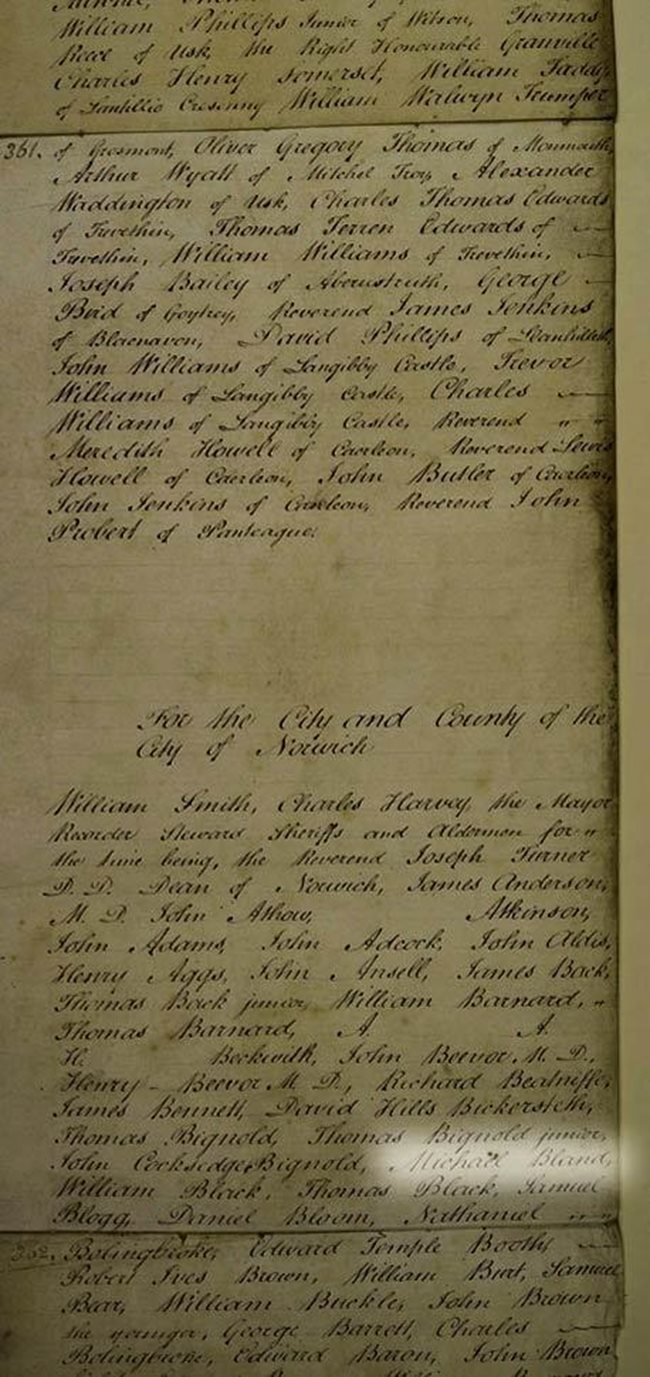 William Phillips Junior of Wilson, Thomas
Reece of Usk, the Right Honourable Granville
Charles Henry Somerset, William Taddy
of Lantillio Cresenny William Walwyn Trumper
361. of Grosmont, Oliver Gregory Thomas of Monmouth,
Arthur Wyatt of Mitchel Troy, Alexander
Waddington of Usk, Charles Thomas Edwards
of Trevethin, Thomas Ferren Edwards of
Trevethin, William Williams of Trevethin,
Joseph Bailey of Aberustruth, George
Bird of Goytrey, Reverend James Jenkins
of Blaenavon, David Phillips of
John Williams of Langibby Castle, Trevor
Williams of Langibby Castle, Charles
Williams of Langibby Castle, Reverend "
Meredith Howell of Caerleon, Reverend Lewis
Howell of Caerleon, John Butler of Caerleon,
John Jenkins of Caerleon, Reverend John
Probert of Panteague.
For the City and County of the
City of Norwich
William Smith, Charles Harvey, the Mayor
Recorder Steward Sheriffs and Aldermen for "
the time being, the Reverend Joseph Turner
D. D. Dean of Norwich, James Anderson,
M. D. John Athow, Atkinson,
John Adams, John Adcock, John Aldis,
Henry Aggs, John Ansell, James Back,
Thomas Back junior, William Barnard, "
Thomas Barnard, A. A.
H. Beckwith, John Beevor M. D.,
Henry Beevor M. D., Richard Beatniffe,
James Bennett, David Hills Bickersteth,
Thomas Bignold, Thomas Bignold junior,
John Cocksedge Bignold, Michael Bland,
William Black, Thomas Black, Samuel
Blogg, Daniel Bloom, Nathaniel "
362. Bolingbroke, Edward Temple Booth,
Robert Ives Brown, William Burt, Samuel
Bear, William Buckle, John Brown
the younger, George Barrett, Charles
Bolingbroke, Edward Baron, John Brown